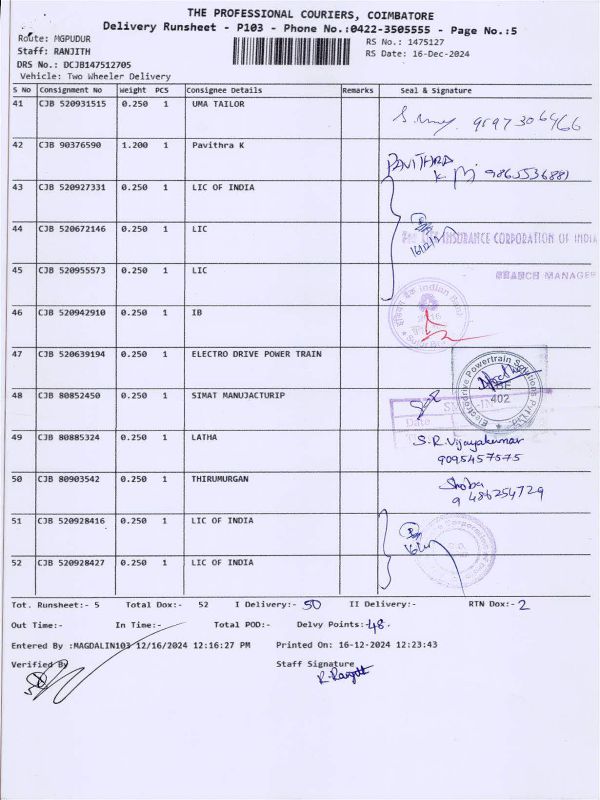 THE PROFESSIONAL COURIERS, COIMBATORE
Delivery Runsheet - P103 - Phone No.:0422-3505555 - Page No.:5
Route: MGPUDUR
RS No.: 1475127
Staff: RANJITH
RS Date: 16-Dec-2024
DRS No.: DCJB147512705
Vehicle: Two Wheeler Delivery
S No Consignment No Weight PCS Consignee Details Remarks Seal & Signature
41 CJB 520931515 0.250 1 UMA TAILOR
42 CJB 90376590 1.200 1 Pavithra K
PAVITHRA
K
43 CJB 520927331 0.250 1 LIC OF INDIA
44 CJB 520672146 0.250 1 LIC
INSURANCE CORPORATION OF INDIA
16/12/24
45 CJB 520955573 0.250 1 LIC
BRANCH MANAGER
Indian Bank
46 CJB 520942910 0.250 1 IB
47 CJB 520639194 0.250 1 ELECTRO DRIVE POWER TRAIN
Electrodrive Powertrain Solutions Pvt Ltd
402
48 CJB 80852450 0.250 1 SIMAT MANUJACTURIP
Date
49 CJB 80885324 0.250 1 LATHA S.R.Vijayakumar
9095457575
50 CJB 80903542 0.250 1 THIRUMURGAN Shoba
9486254729
51 CJB 520928416 0.250 1 LIC OF INDIA
52 CJB 520928427 0.250 1 LIC OF INDIA
Tot. Runsheet:- 5 Total Dox:- 52 I Delivery:- 50 II Delivery:- RTN Dox:- 2
Out Time:- In Time:- Total POD:- Delvy Points:- 48.
Entered By :MAGDALIN103 12/16/2024 12:16:27 PM Printed On: 16-12-2024 12:23:43
Verified By Staff Signature
R.Ranjith